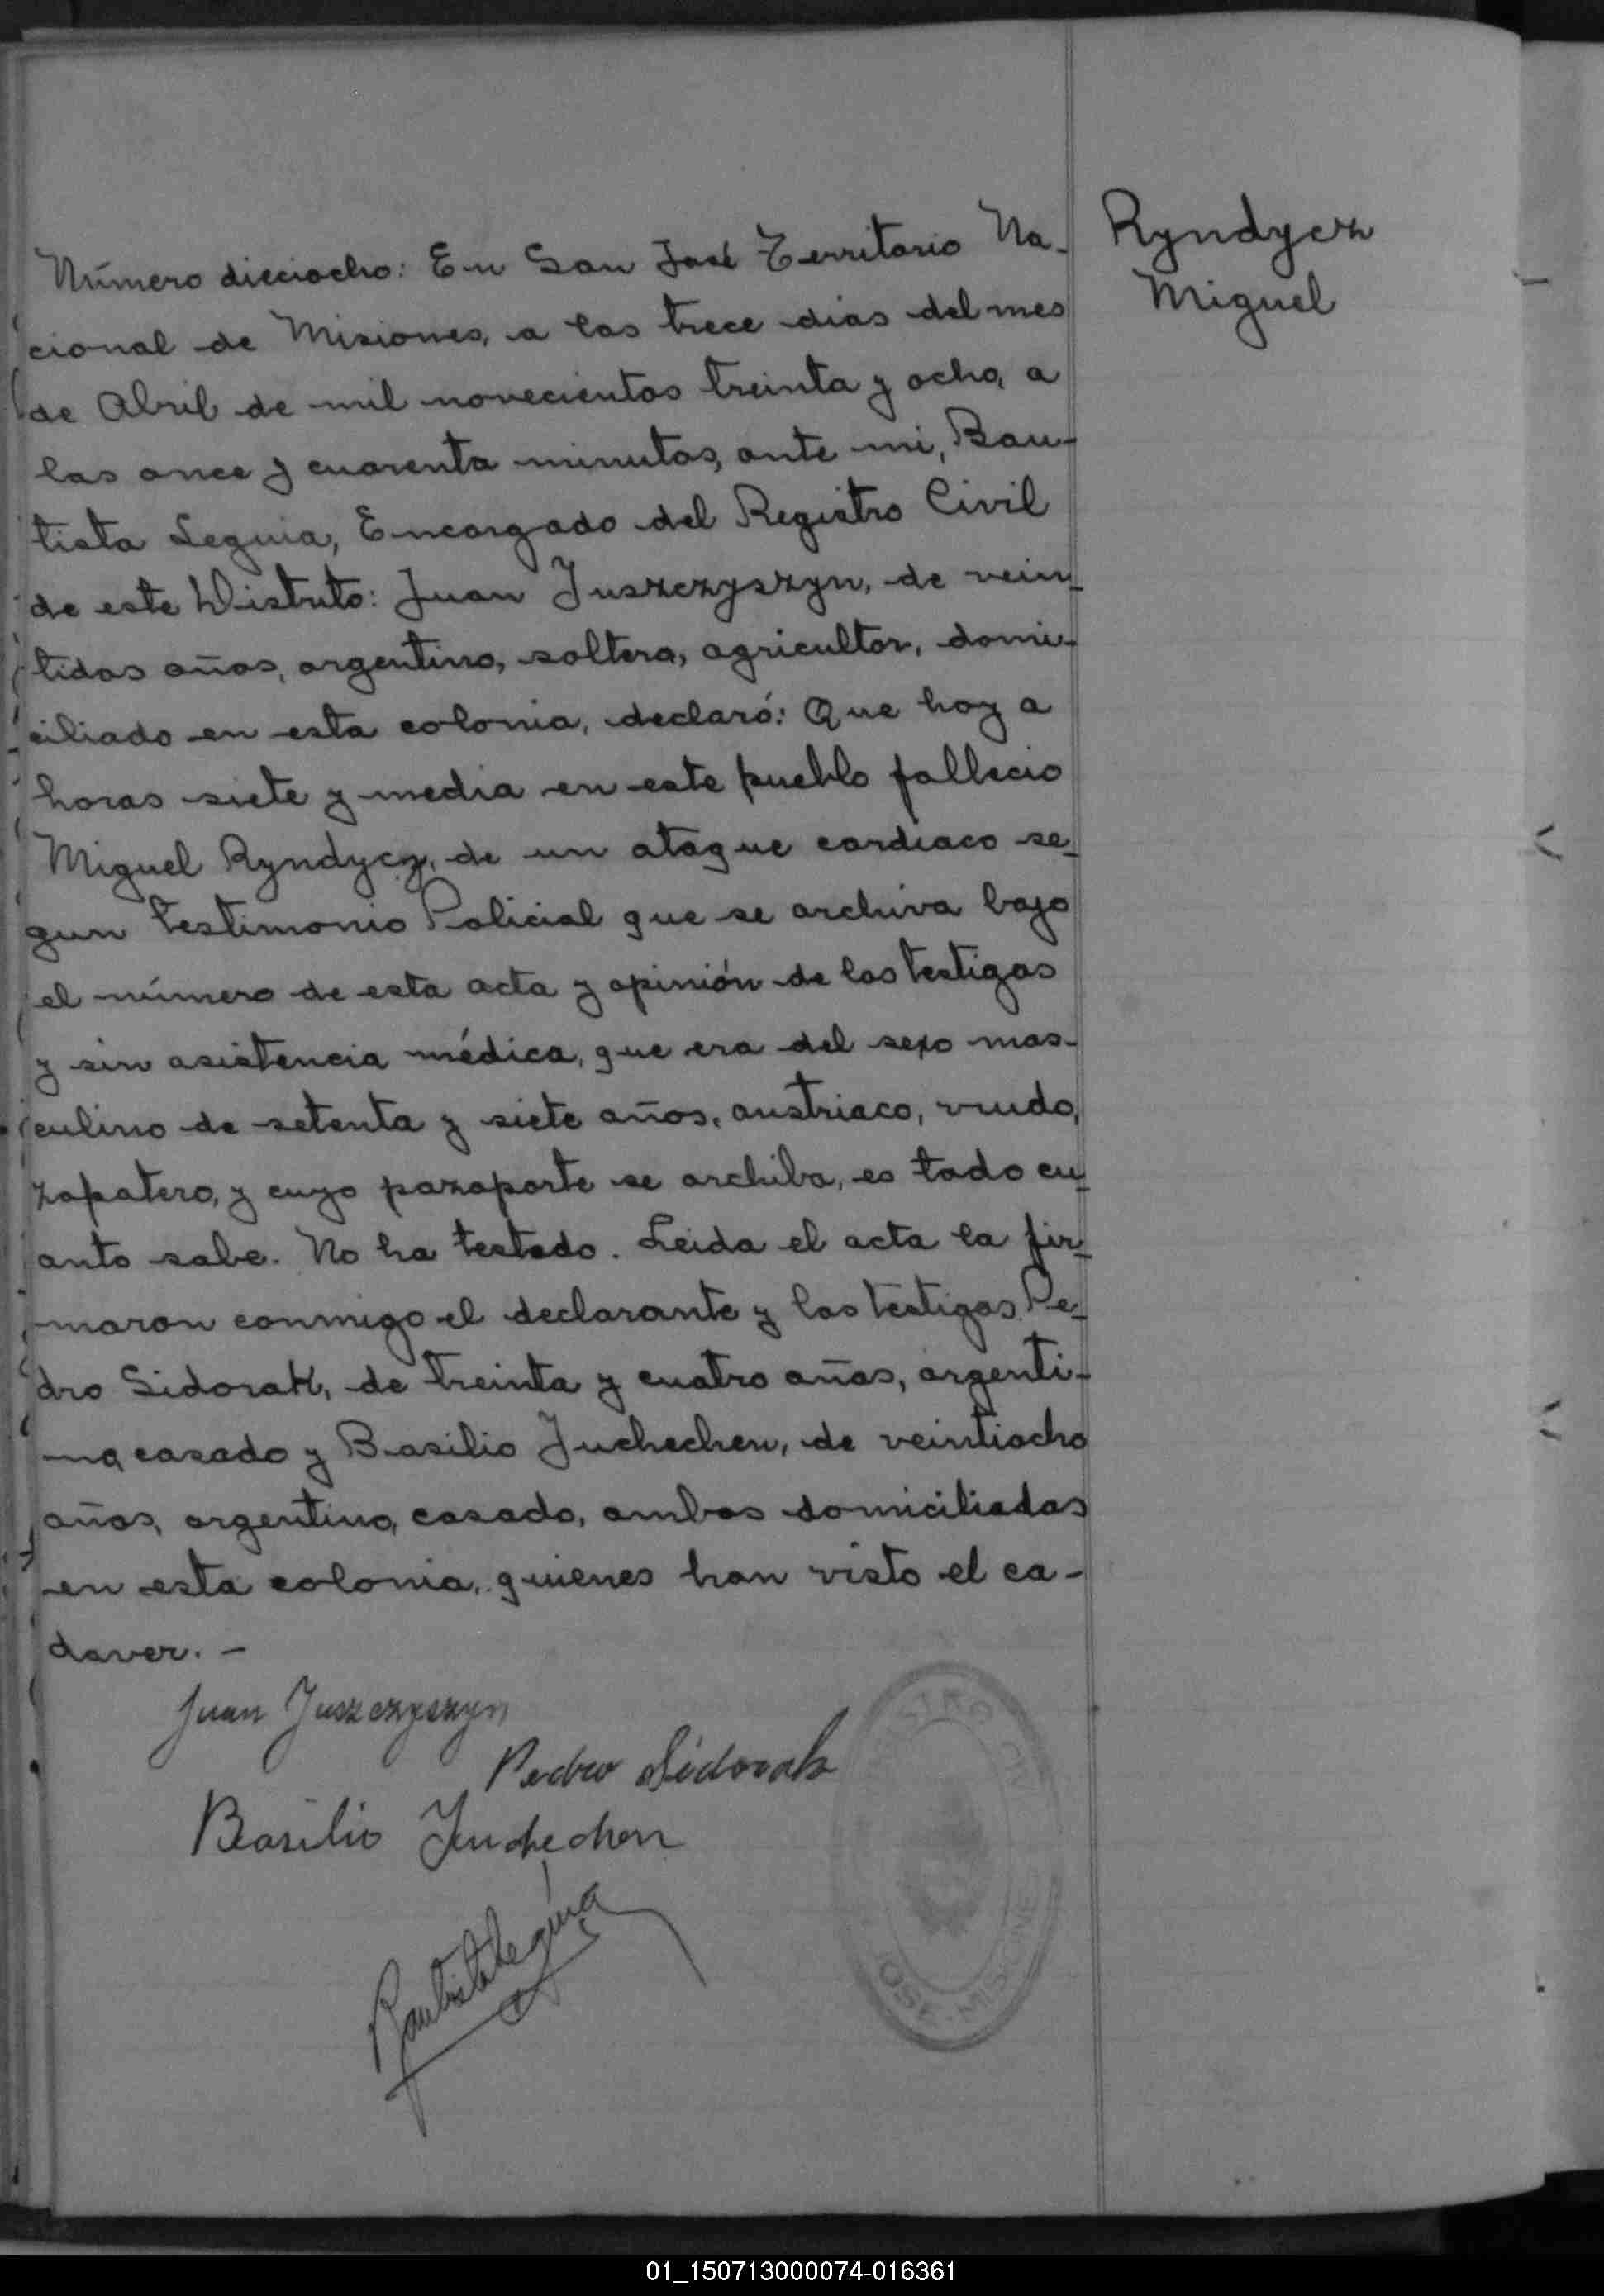 Ryndycz
Miguel
Número dieciocho: En San José Territorio Na-
cional de Misiones, a los trece dias del mes
de Abril de mil novecientos treinta y ocho, a
las once y cuarenta minutos, ante mi, Bau-
tista Leguia, Encargado del Registro Civil
de este Distrito: Juan Juszczyszyn, de vein-
tidos años, argentino, soltero, agricultor, domi-
ciliado en esta colonia, declaró: Que hoy a
horas siete y media en este pueblo fallecio
Miguel Ryndycz, de un ataque cardiaco se-
gun testimonio Policial que se archiva bajo
el número de esta acta y opinión de los testigos
y sin asistencia médica, que era del sexo mas-
culino de setenta y siete años, austriaco, viudo,
zapatero, y cuyo pazaporte se archiba, es todo cu-
anto sabe. No ha testado. Leida el acta la fir-
maron conmigo el declarante y los testigos Pe-
dro Sidorak, de treinta y cuatro años, argenti-
no, casado y Basilio Juchechen, de veintiocho
años, argentino, casado, ambos domiciliados
en esta colonia, quienes han visto el ca-
daver. -
Juan Juszczyszyn
Pedro Sidorak
Basilio Juchechen
Bautista Leguia
JOSE - MISIONES
01_150713000074-016361